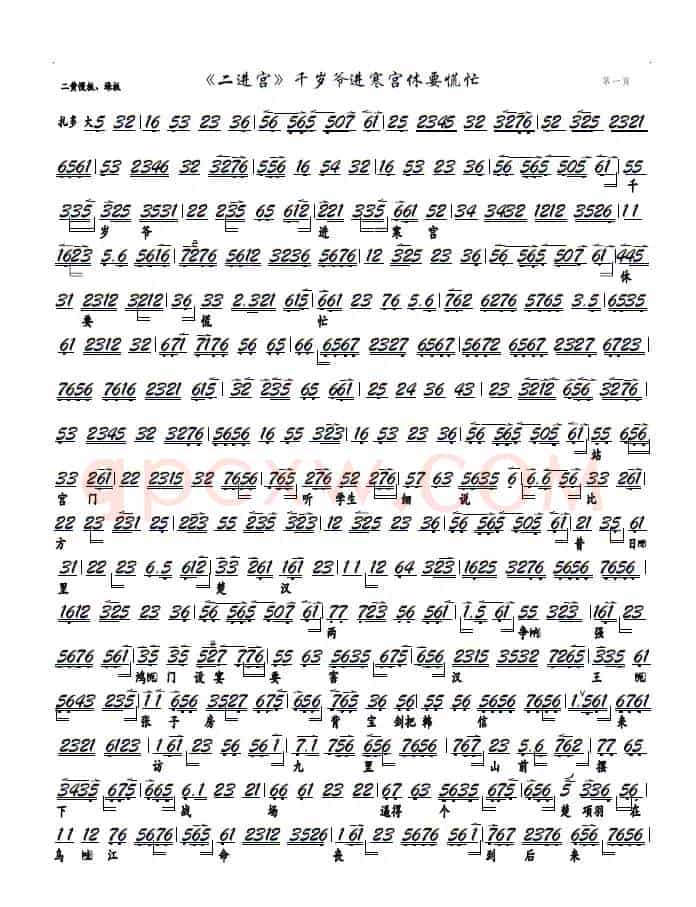 《二进宫》千岁爷进寒宫休要慌忙
二黄慢板、垛板
第一页
扎多 大5 32 | 16 53 23 36 | 56 565 507 61 | 25 2345 32 3276 | 52 325 2321
6561 | 53 2346 32 3276 | 556 16 54 32 | 16 53 23 36 | 56 565 505 61 | 55
千
335 325 3531 | 22 235 65 612 | 221 335 661 52 | 34 3432 1212 3526 | 11
岁 爷 进 寒 宫
1623 5.6 5616 | 7276 5612 3236 5676 | 12 325 23 36 | 56 565 507 61 | 445
休
31 2312 3212 | 36 33 2.321 615 | 661 23 76 5.6 | 762 6276 5765 3.5 | 6535
要 慌 忙
61 2312 32 | 671 7176 56 65 | 66 6567 2327 6567 | 5672 6567 2327 6567 |
7656 7616 2321 615 | 32 235 65 661 | 25 24 36 43 | 23 3212 656 3276 |
53 2345 32 3276 | 5656 16 55 323 | 16 53 23 36 | 56 565 505 61 | 55 656
站
33 261 | 22 2315 32 7656 | 765 276 52 276 | 57 63 5635 6 | 6.56 56 33 261 |
宫 门 听 学生 细 说 比
22 23 231 25 | 235 332 5 325 | 12 325 23 36 | 56 565 505 61 | 21 35 61
方 昔 日
31 | 22 23 6.5 612 | 323 261 161 23 | 11 12 64 323 | 1625 3276 5656 7656 |
里 楚 汉
1612 325 23 36 | 56 565 507 61 | 77 723 56 561 | 1.5 61 55 323 | 161 23
两 争 强
5676 561 | 35 35 527 776 | 55 5635 675 656 | 56 2315 3532 7265 | 335 61
鸿 门 设宴 要 害 汉 王
5643 235 | 11 656 3527 675 | 656 765 276 5635 | 656 561 5656 7656 | 1.561 6761
张 子 房 背 宝 剑把 韩 信 来
2321 6123 | 161 23 56 561 | 7.1 756 7656 7656 | 567 23 5.6 762 | 77 65
访 九 里 山 前 摆
3435 675 | 665 6.1 23 21 | 66 23 22 67 | 63 5635 675 656 | 5 336 56 5
下 战 场 逼得 个 楚 项羽 在
11 12 76 5676 | 565 61 2312 3526 | 161 23 5676 561 | 767 2376 656 7656 |
乌 江 命 丧 到 后 来